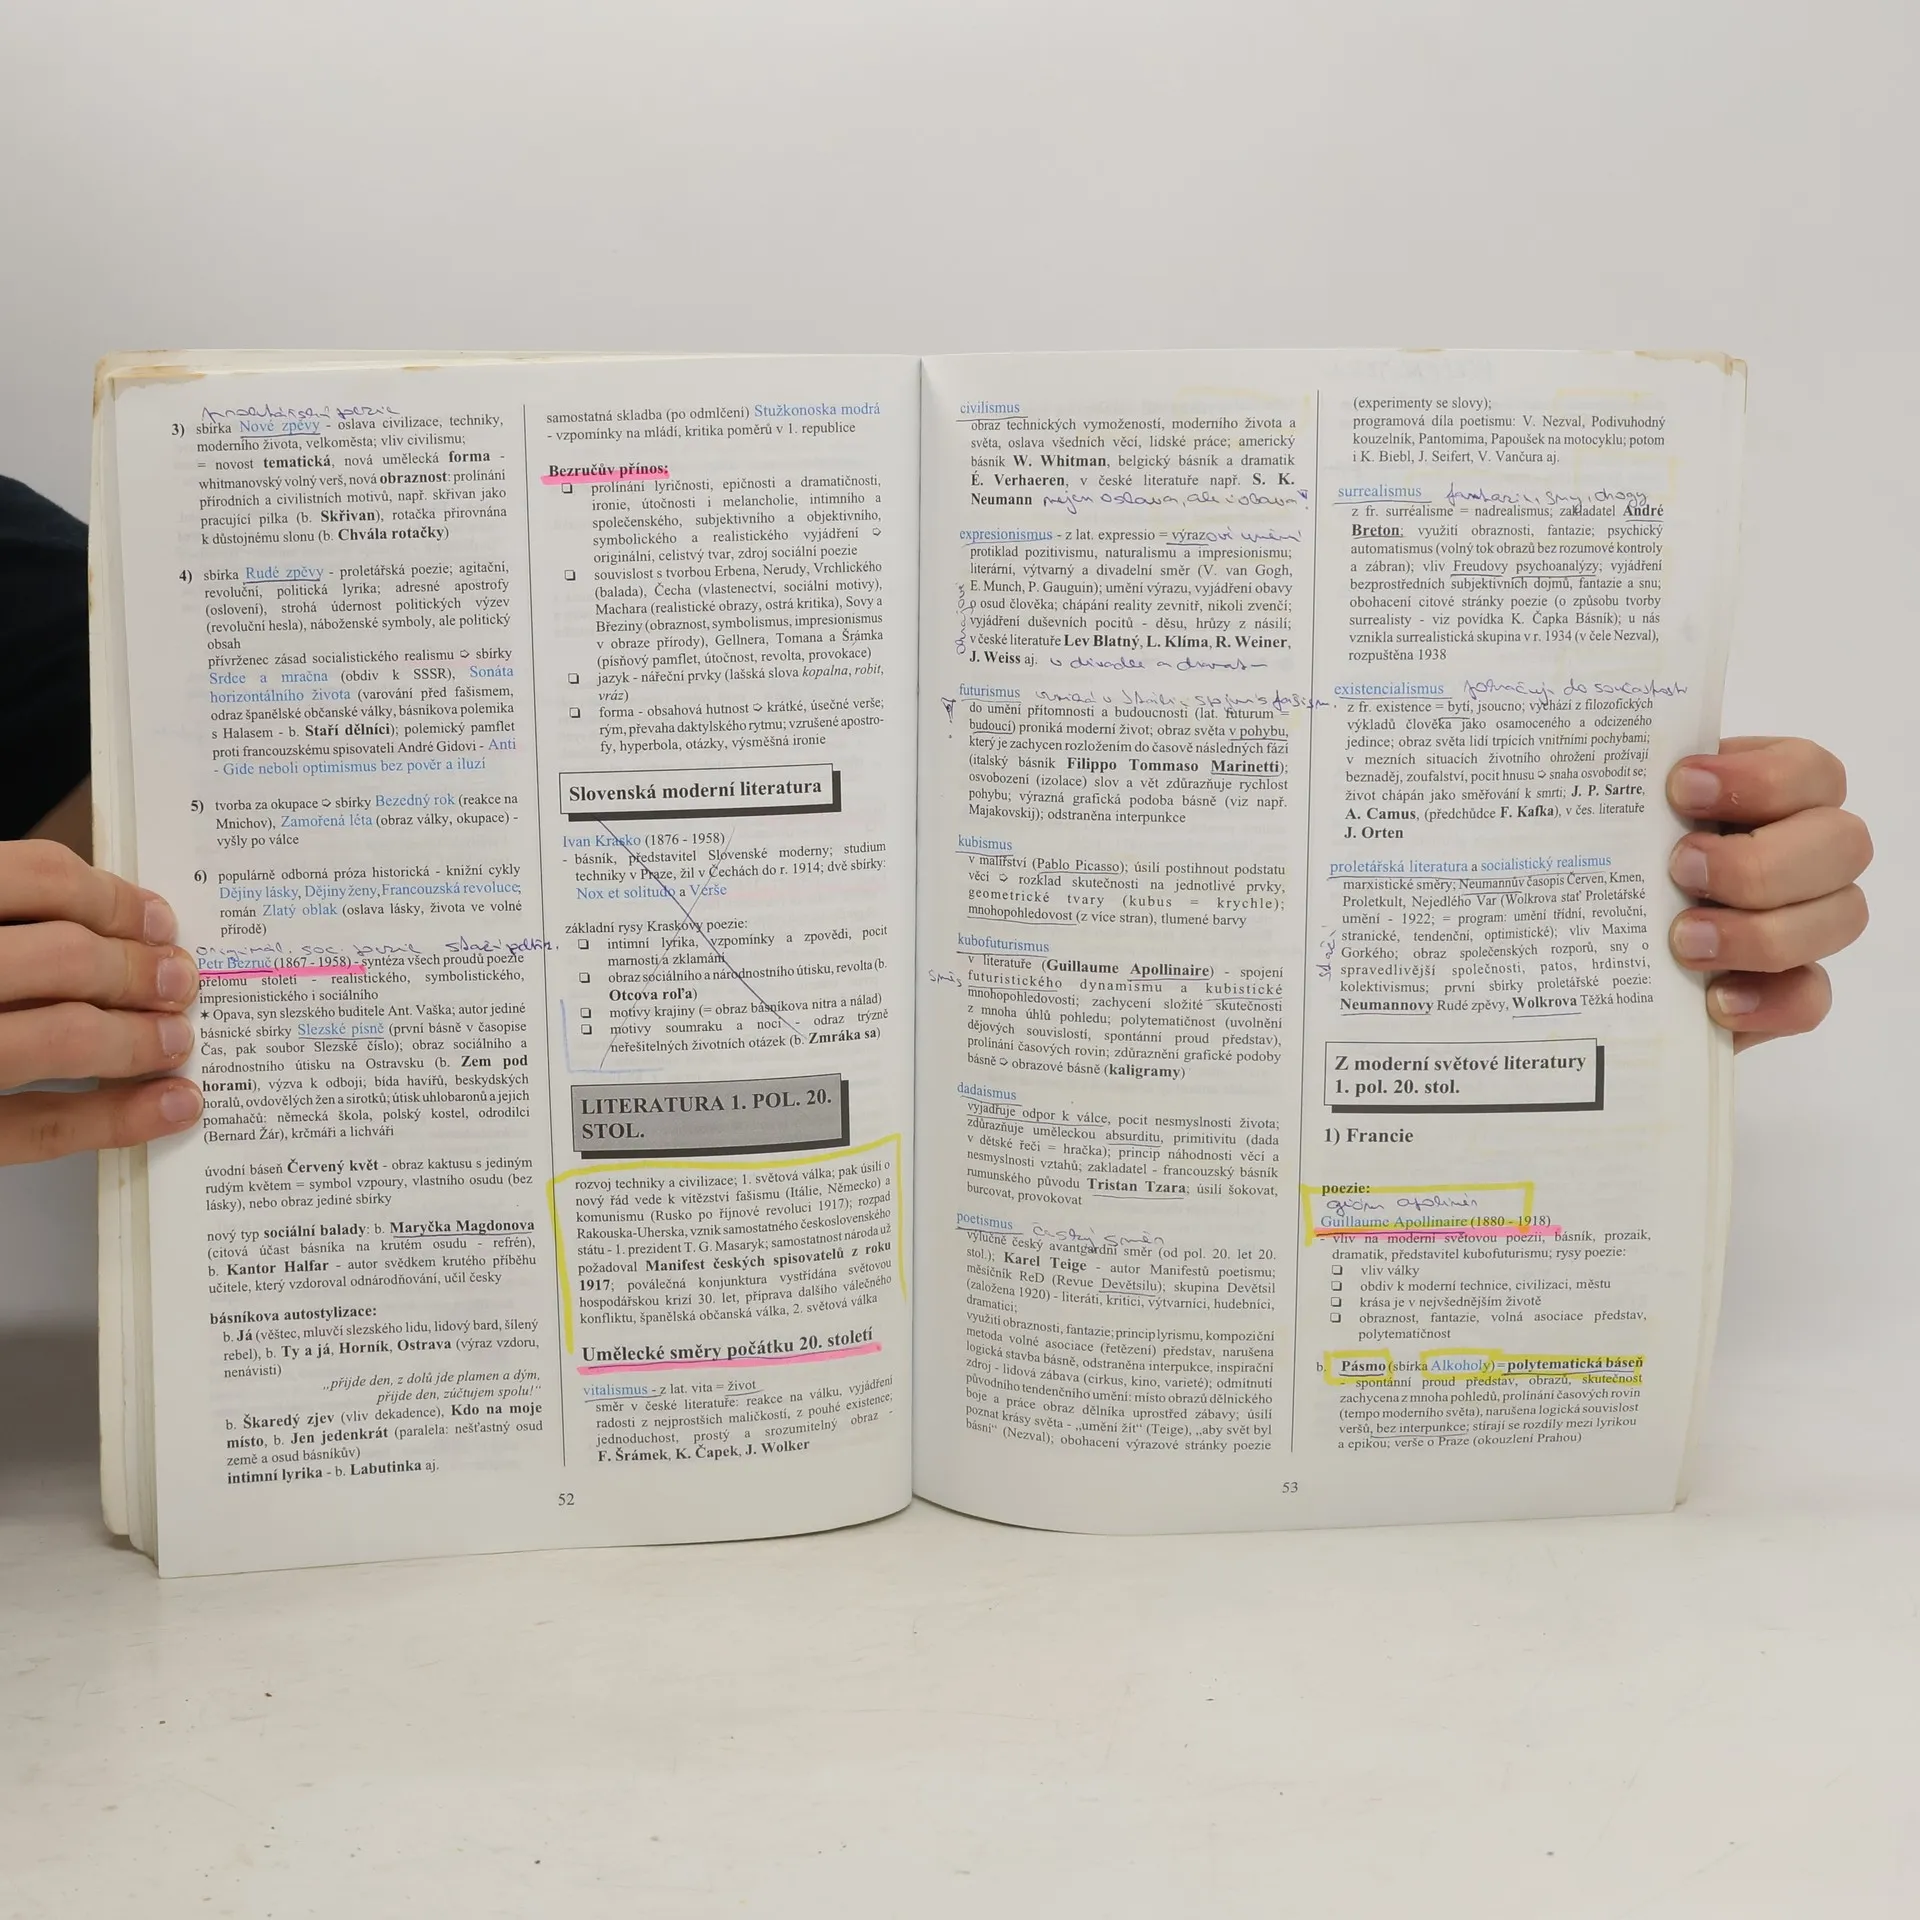 3) sbírka Nové zpěvy - oslava civilizace, techniky,
moderního života, velkoměsta; vliv civilismu;
= novost tematická, nová umělecká forma -
whitmanovský volný verš, nová obraznost: prolínání
přírodních a civilistních motivů, např. skřivan jako
pracující pilka (b. Skřivan), rotačka přirovnána
k důstojnému slonu (b. Chvála rotačky)
4) sbírka Rudé zpěvy - proletářská poezie; agitační,
revoluční, politická lyrika; adresné apostrofy
(oslovení), strohá údernost politických výzev
(revoluční hesla), náboženské symboly, ale politický
obsah
přívrženec zásad socialistického realismu ➪ sbírky
Srdce a mračna (obdiv k SSSR), Sonáta
horizontálního života (varování před fašismem,
odraz španělské občanské války, básníkova polemika
s Halasem - b. Staří dělníci); polemický pamflet
proti francouzskému spisovateli André Gidovi - Anti
- Gide neboli optimismus bez pověr a iluzí
5) tvorba za okupace ➪ sbírky Bezedný rok (reakce na
Mnichov), Zamořená léta (obraz války, okupace) -
vyšly po válce
6) populárně odborná próza historická - knižní cykly
Dějiny lásky, Dějiny ženy, Francouzská revoluce;
román Zlatý oblak (oslava lásky, života ve volné
přírodě)
Petr Bezruč (1867 - 1958) - syntéza všech proudů poezie
přelomu století - realistického, symbolistického,
impresionistického i sociálního
✶ Opava, syn slezského buditele Ant. Vaška; autor jediné
básnické sbírky Slezské písně (první básně v časopise
Čas, pak soubor Slezské číslo); obraz sociálního a
národnostního útisku na Ostravsku (b. Zem pod
horami), výzva k odboji; bída havířů, beskydských
horalů, ovdovělých žen a sirotků; útisk uhlobaronů a jejich
pomahačů: německá škola, polský kostel, odrodilci
(Bernard Žár), krčmáři a lichváři
úvodní báseň Červený květ - obraz kaktusu s jediným
rudým květem = symbol vzpoury, vlastního osudu (bez
lásky), nebo obraz jediné sbírky
nový typ sociální balady: b. Maryčka Magdonova
(citová účast básníka na krutém osudu - refrén),
b. Kantor Halfar - autor svědkem krutého příběhu
učitele, který vzdoroval odnárodňování, učil česky
básníkova autostylizace:
b. Já (věštec, mluvčí slezského lidu, lidový bard, šílený
rebel), b. Ty a já, Horník, Ostrava (výraz vzdoru,
nenávisti)
„přijde den, z dolů jde plamen a dým,
přijde den, zúčtujem spolu!“
b. Škaredý zjev (vliv dekadence), Kdo na moje
místo, b. Jen jedenkrát (paralela: nešťastný osud
země a osud básníkův)
intimní lyrika - b. Labutinka aj.
samostatná skladba (po odmlčení) Stužkonoska modrá
- vzpomínky na mládí, kritika poměrů v 1. republice
Bezručův přínos:
❏ prolínání lyričnosti, epičnosti a dramatičnosti,
ironie, útočnosti i melancholie, intimního a
společenského, subjektivního a objektivního,
symbolického a realistického vyjádření ➪
originální, celistvý tvar, zdroj sociální poezie
❏ souvislost s tvorbou Erbena, Nerudy, Vrchlického
(balada), Čecha (vlastenectví, sociální motivy),
Machara (realistické obrazy, ostrá kritika), Sovy a
Březiny (obraznost, symbolismus, impresionismus
v obraze přírody), Gellnera, Tomana a Šrámka
(písňový pamflet, útočnost, revolta, provokace)
❏ jazyk - nářeční prvky (lašská slova kopalna, robit,
vráz)
❏ forma - obsahová hutnost ➪ krátké, úsečné verše;
rým, převaha daktylského rytmu; vzrušené apostro-
fy, hyperbola, otázky, výsměšná ironie
Slovenská moderní literatura
Ivan Krasko (1876 - 1958)
- básník, představitel Slovenské moderny; studium
techniky v Praze, žil v Čechách do r. 1914; dvě sbírky:
Nox et solitudo a Verše
základní rysy Kraskovy poezie:
❏ intimní lyrika, vzpomínky a zpovědi, pocit
marnosti a zklamání
❏ obraz sociálního a národnostního útisku, revolta (b.
Otcova roľa)
❏ motivy krajiny (= obraz básníkova nitra a nálad)
❏ motivy soumraku a noci - odraz trýzně
neřešitelných životních otázek (b. Zmráka sa)
LITERATURA 1. POL. 20.
STOL.
rozvoj techniky a civilizace; 1. světová válka; pak úsilí o
nový řád vede k vítězství fašismu (Itálie, Německo) a
komunismu (Rusko po říjnové revoluci 1917); rozpad
Rakouska-Uherska, vznik samostatného československého
státu - 1. prezident T. G. Masaryk; samostatnost národa už
požadoval Manifest českých spisovatelů z roku
1917; poválečná konjunktura vystřídána světovou
hospodářskou krizí 30. let, příprava dalšího válečného
konfliktu, španělská občanská válka, 2. světová válka
Umělecké směry počátku 20. století
vitalismus - z lat. vita = život
směr v české literatuře: reakce na válku, vyjádření
radosti z nejprostších maličkostí, z pouhé existence;
jednoduchost, prostý a srozumitelný obraz -
F. Šrámek, K. Čapek, J. Wolker
52
civilismus
obraz technických vymožeností, moderního života a
světa, oslava všedních věcí, lidské práce; americký
básník W. Whitman, belgický básník a dramatik
É. Verhaeren, v české literatuře např. S. K.
Neumann nejen oslava, ale i obava
expresionismus - z lat. expressio = výraz
protiklad pozitivismu, naturalismu a impresionismu;
literární, výtvarný a divadelní směr (V. van Gogh,
E. Munch, P. Gauguin); umění výrazu, vyjádření obavy
o osud člověka; chápání reality zevnitř, nikoli zvenčí;
vyjádření duševních pocitů - děsu, hrůzy z násilí;
v české literatuře Lev Blatný, L. Klíma, R. Weiner,
J. Weiss aj.
futurismus
do umění přítomnosti a budoucnosti (lat. futurum =
budoucí) proniká moderní život; obraz světa v pohybu,
který je zachycen rozložením do časově následných fází
(italský básník Filippo Tommaso Marinetti);
osvobození (izolace) slov a vět zdůrazňuje rychlost
pohybu; výrazná grafická podoba básně (viz např.
Majakovskij); odstraněna interpunkce
kubismus
v malířství (Pablo Picasso); úsilí postihnout podstatu
věci ➪ rozklad skutečnosti na jednotlivé prvky,
geometrické tvary (kubus = krychle);
mnohopohledovost (z více stran), tlumené barvy
kubofuturismus
v literatuře (Guillaume Apollinaire) - spojení
futuristického dynamismu a kubistické
mnohopohledovosti; zachycení složité skutečnosti
z mnoha úhlů pohledu; polytematičnost (uvolnění
dějových souvislostí, spontánní proud představ),
prolínání časových rovin; zdůraznění grafické podoby
básně ➪ obrazové básně (kaligramy)
dadaismus
vyjadřuje odpor k válce, pocit nesmyslnosti života;
zdůrazňuje uměleckou absurditu, primitivitu (dada
v dětské řeči = hračka); princip náhodnosti věcí a
nesmyslnosti vztahů; zakladatel - francouzský básník
rumunského původu Tristan Tzara; úsilí šokovat,
burcovat, provokovat
poetismus český směr
výlučně český avantgardní směr (od pol. 20. let 20.
stol.); Karel Teige - autor Manifestů poetismu;
měsíčník ReD (Revue Devětsilu); skupina Devětsil
(založena 1920) - literáti, kritici, výtvarníci, hudebníci,
dramatici;
využití obraznosti, fantazie; princip lyrismu, kompoziční
metoda volné asociace (řetězení) představ, narušena
logická stavba básně, odstraněna interpunkce, inspirační
zdroj - lidová zábava (cirkus, kino, varieté); odmítnutí
původního tendenčního umění: místo obrazů dělnického
boje a práce obraz dělníka uprostřed zábavy; úsilí
poznat krásy světa - „umění žít“ (Teige), „aby svět byl
básní“ (Nezval); obohacení výrazové stránky poezie
(experimenty se slovy);
programová díla poetismu: V. Nezval, Podivuhodný
kouzelník, Pantomima, Papoušek na motocyklu; potom
i K. Biebl, J. Seifert, V. Vančura aj.
surrealismus fantazie, sny, drogy
z fr. surréalisme = nadrealismus; zakladatel André
Breton; využití obraznosti, fantazie; psychický
automatismus (volný tok obrazů bez rozumové kontroly
a zábran); vliv Freudovy psychoanalýzy; vyjádření
bezprostředních subjektivních dojmů, fantazie a snu;
obohacení citové stránky poezie (o způsobu tvorby
surrealisty - viz povídka K. Čapka Básník); u nás
vznikla surrealistická skupina v r. 1934 (v čele Nezval),
rozpuštěna 1938
existencialismus pokračuje do současnosti
z fr. existence = bytí, jsoucno; vychází z filozofických
výkladů člověka jako osamoceného a odcizeného
jedince; obraz světa lidí trpících vnitřními pochybami;
v mezních situacích životního ohrožení prožívají
beznaděj, zoufalství, pocit hnusu ➪ snaha osvobodit se;
život chápán jako směřování k smrti; J. P. Sartre,
A. Camus, (předchůdce F. Kafka), v čes. literatuře
J. Orten
proletářská literatura a socialistický realismus
marxistické směry; Neumannův časopis Červen, Kmen,
Proletkult, Nejedlého Var (Wolkrova stať Proletářské
umění - 1922; = program: umění třídní, revoluční,
stranické, tendenční, optimistické); vliv Maxima
Gorkého; obraz společenských rozporů, sny o
spravedlivější společnosti, patos, hrdinství,
kolektivismus; první sbírky proletářské poezie:
Neumannovy Rudé zpěvy, Wolkrova Těžká hodina
Z moderní světové literatury
1. pol. 20. stol.
1) Francie
poezie:
Guillaume Apollinaire (1880 - 1918)
- vliv na moderní světovou poezii, básník, prozaik,
dramatik, představitel kubofuturismu; rysy poezie:
❏ vliv války
❏ obdiv k moderní technice, civilizaci, městu
❏ krása je v nejvšednějším životě
❏ obraznost, fantazie, volná asociace představ,
polytematičnost
b. Pásmo (sbírka Alkoholy) = polytematická báseň
- spontánní proud představ, obrazů, skutečnost
zachycena z mnoha pohledů, prolínání časových rovin
(tempo moderního světa), narušena logická souvislost
veršů, bez interpunkce; stírají se rozdíly mezi lyrikou
a epikou; verše o Praze (okouzlení Prahou)
53